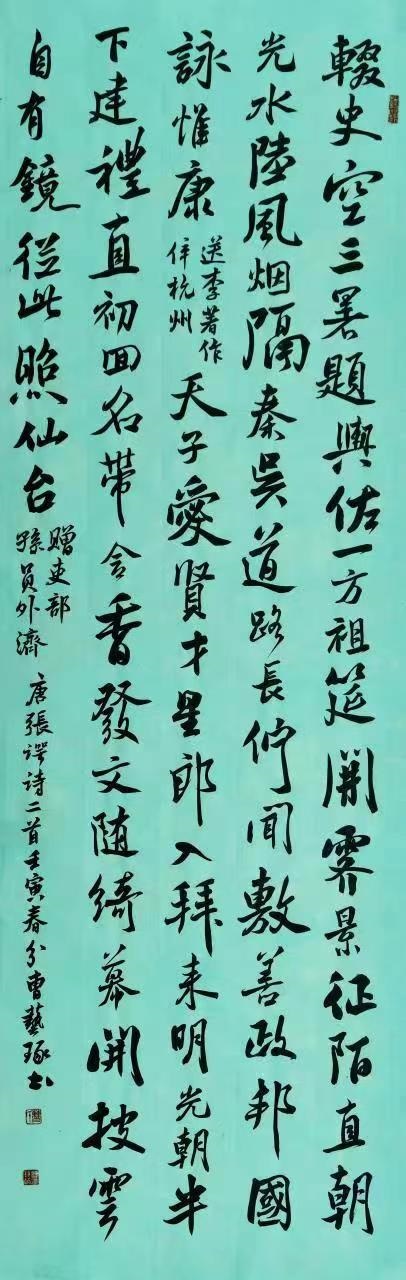 輟史空三署題輿佐一方祖筵開霽景征陌直朝
光水陸風烟隔秦吳道路長佇聞敷善政邦國
詠惟康送李著作倅杭州天子愛賢才星郎入拜来明光朝半
下建禮直初回名帶含香發文随綺幕開披雲
自有鏡從此照仙台贈吏部孫員外濟唐張諤诗二首壬寅春分曹藝琢书